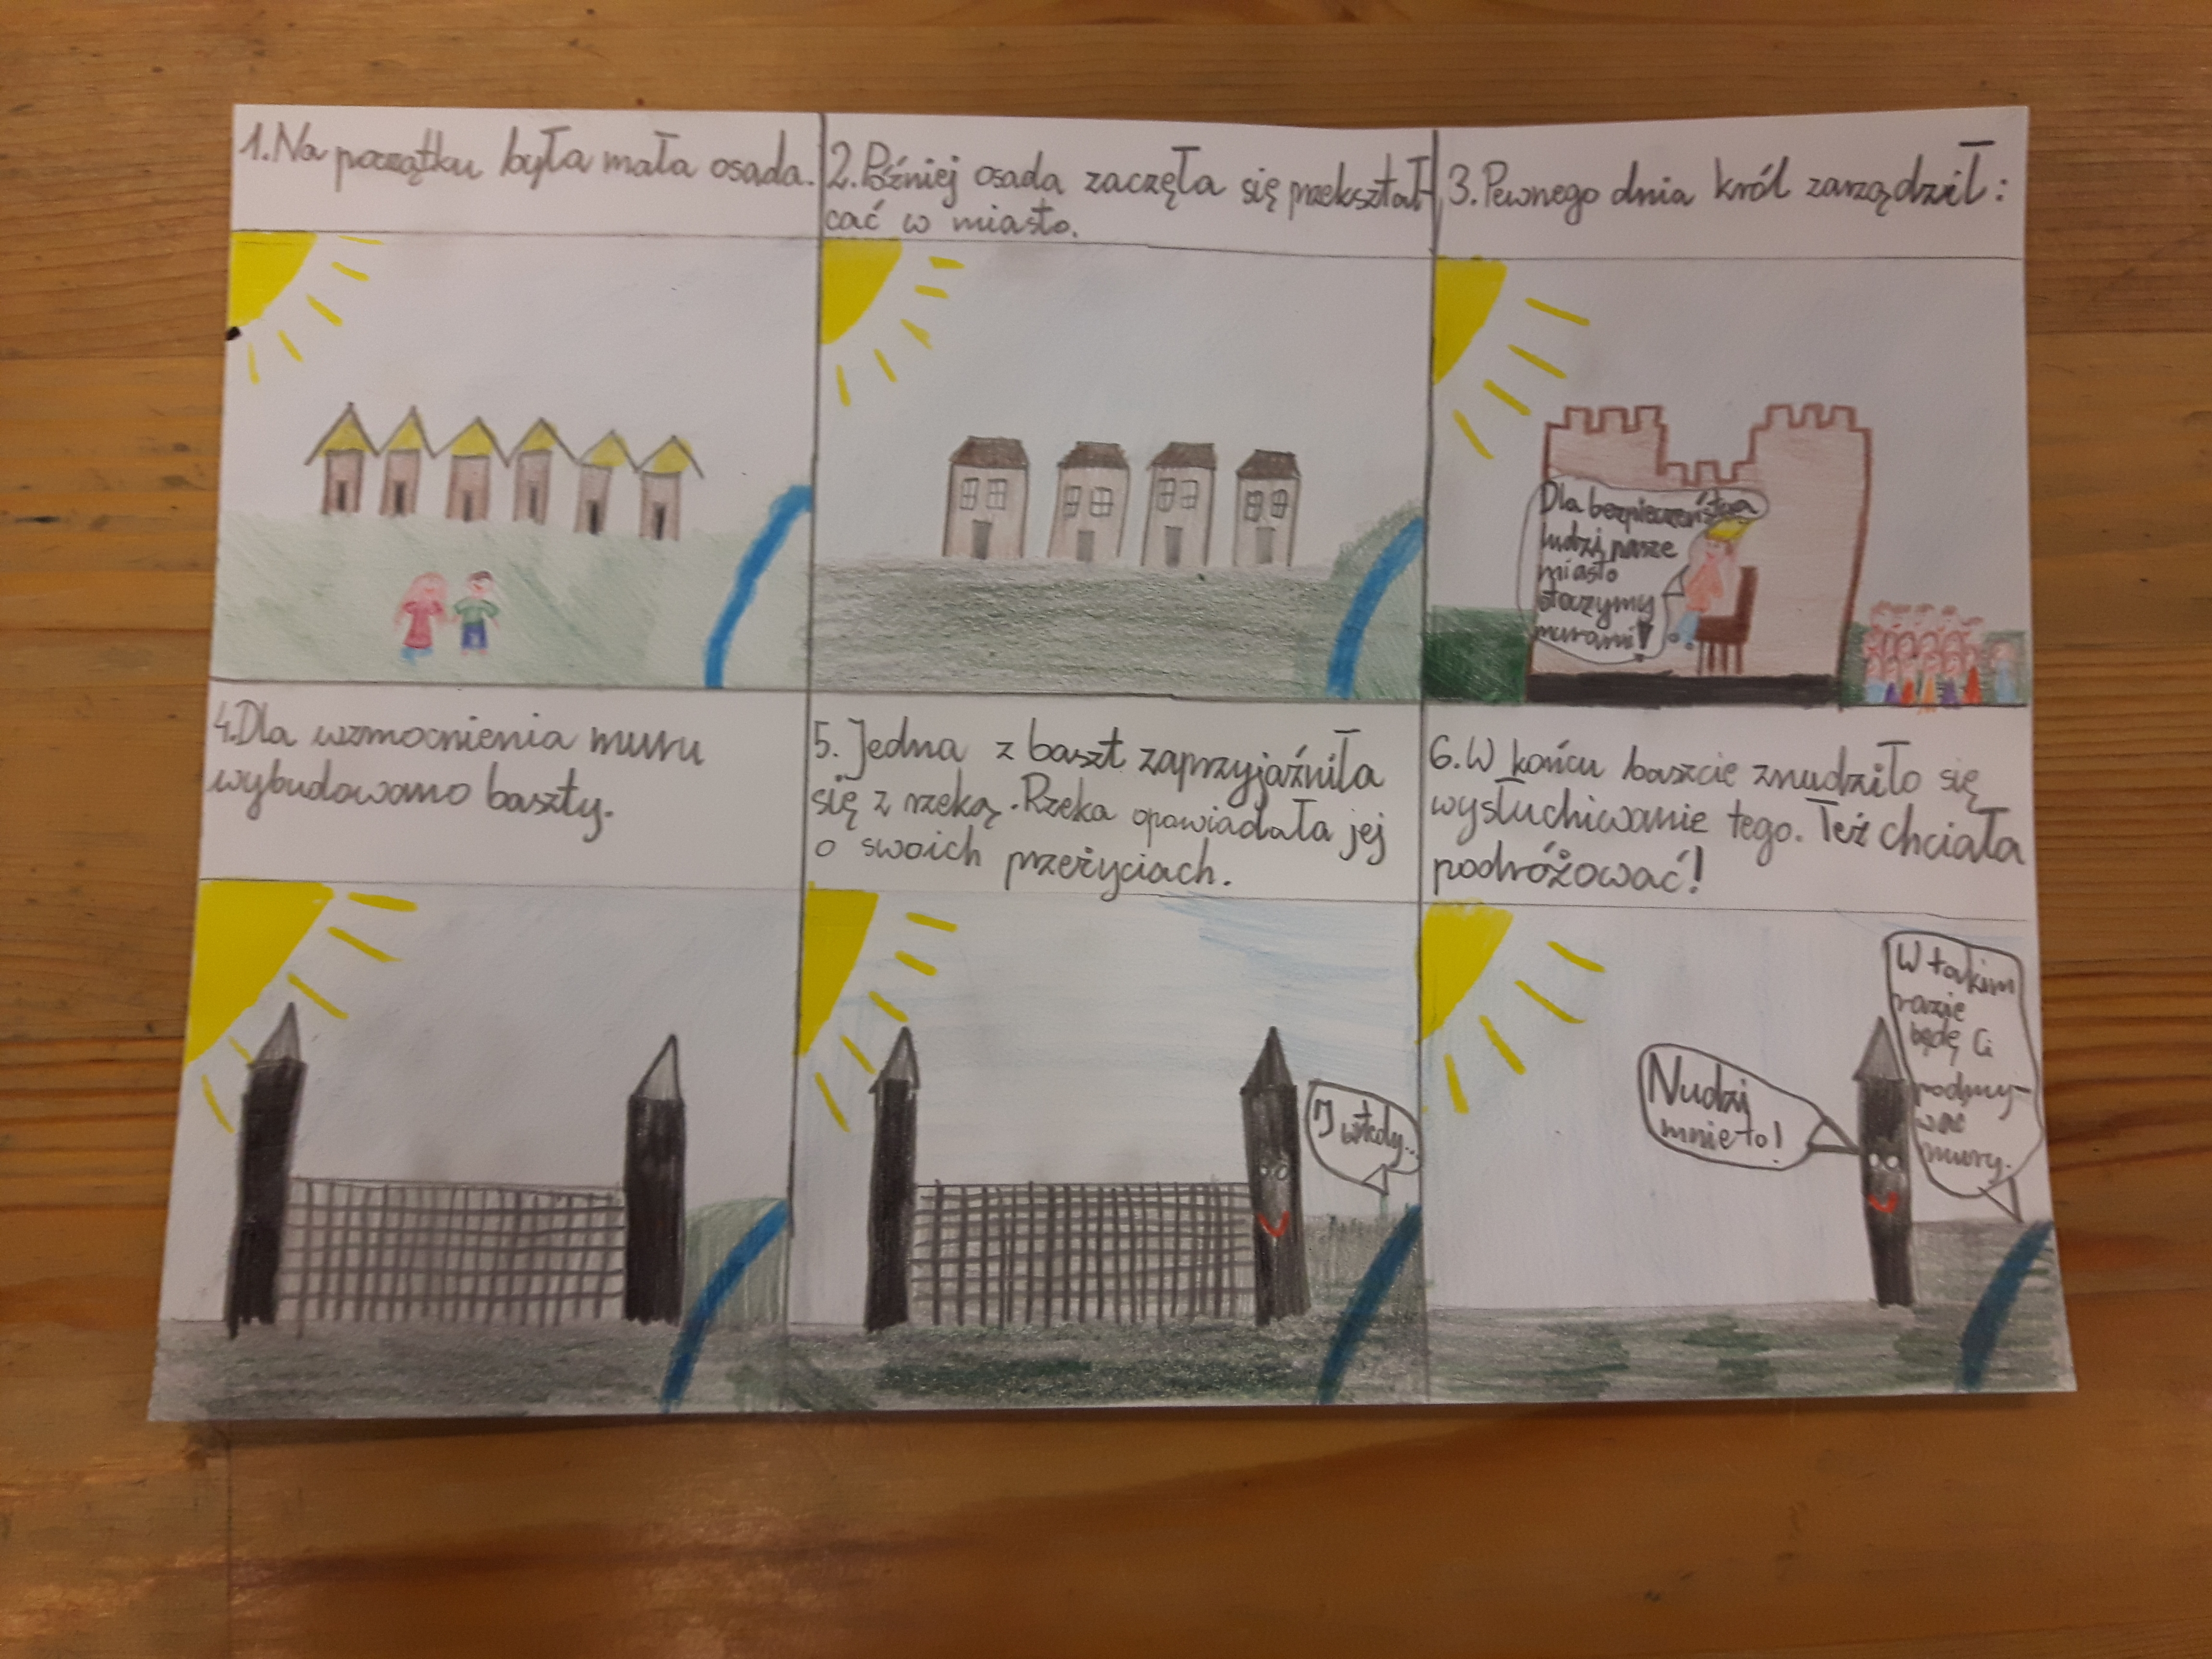 1. Na początku była mała osada.
2. Później osada zaczęła się przekształ-
cać w miasto.
3. Pewnego dnia król zarządził:
Dla bezpieczeństwa
ludzi, nasze
miasto
otoczymy
murami!
4. Dla wzmocnienia muru
wybudowano baszty.
5. Jedna z baszt zaprzyjaźniła
się z rzeką. Rzeka opowiadała jej
o swoich przeżyciach.
I wtedy...
6. W końcu baszcie znudziło się
wysłuchiwanie tego. Też chciała
podróżować!
Nudzi
mnie to!
W takim
razie
będę Ci
podmy-
wać
mury.